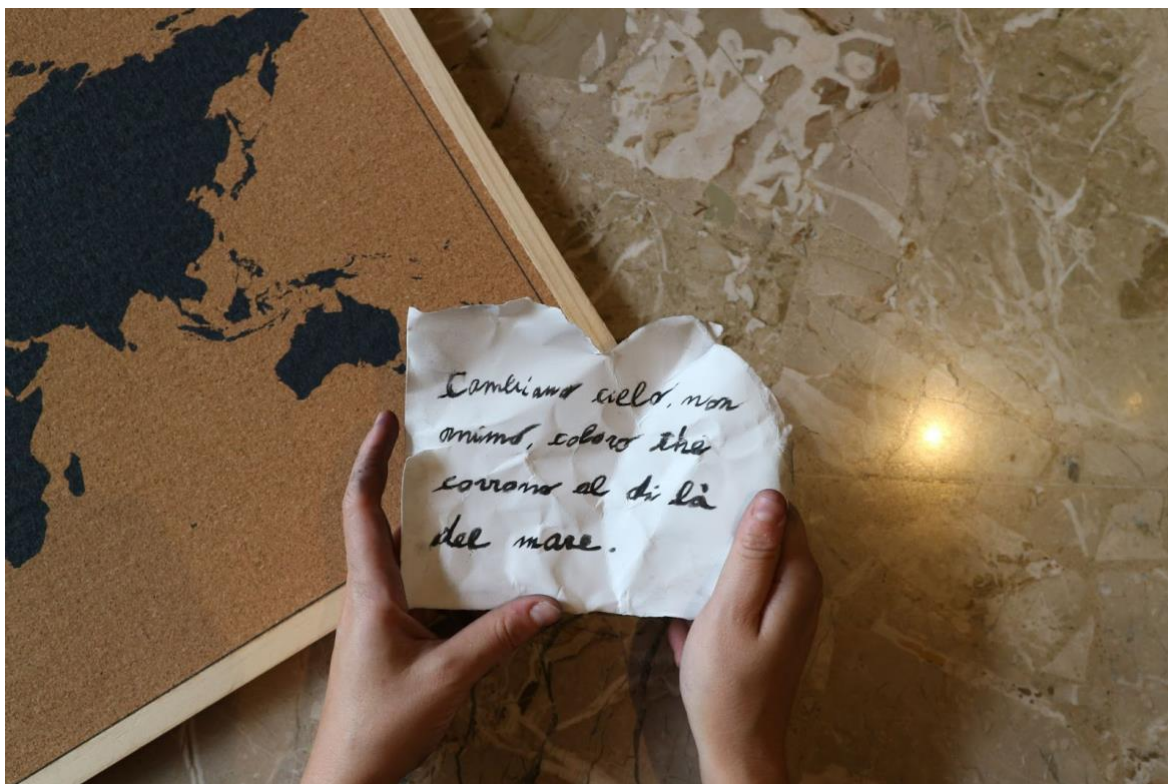 Cambiano cielo, non
animo, coloro che
corrono al di là
del mare.